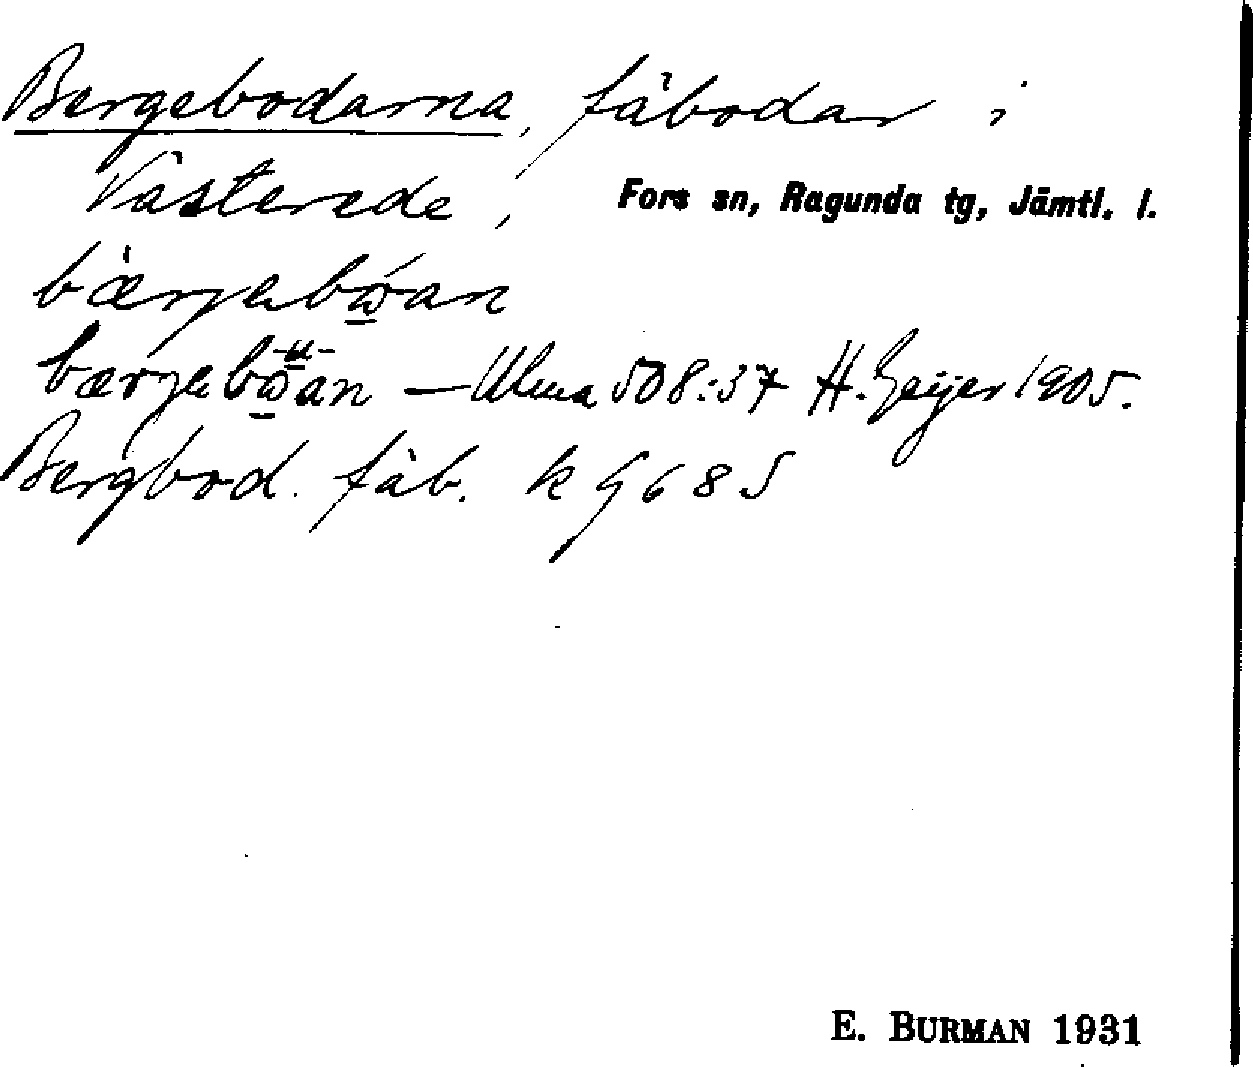 Bergebodarna, fäbodar i
Västerede, Fors sn, Ragunda tg, Jämtl. l.
bærjebωan
bærjebωan — Ulma 508:37 H. Geijer 1905.
Bergbod. fäb. k G 68 S
E. BURMAN 1931